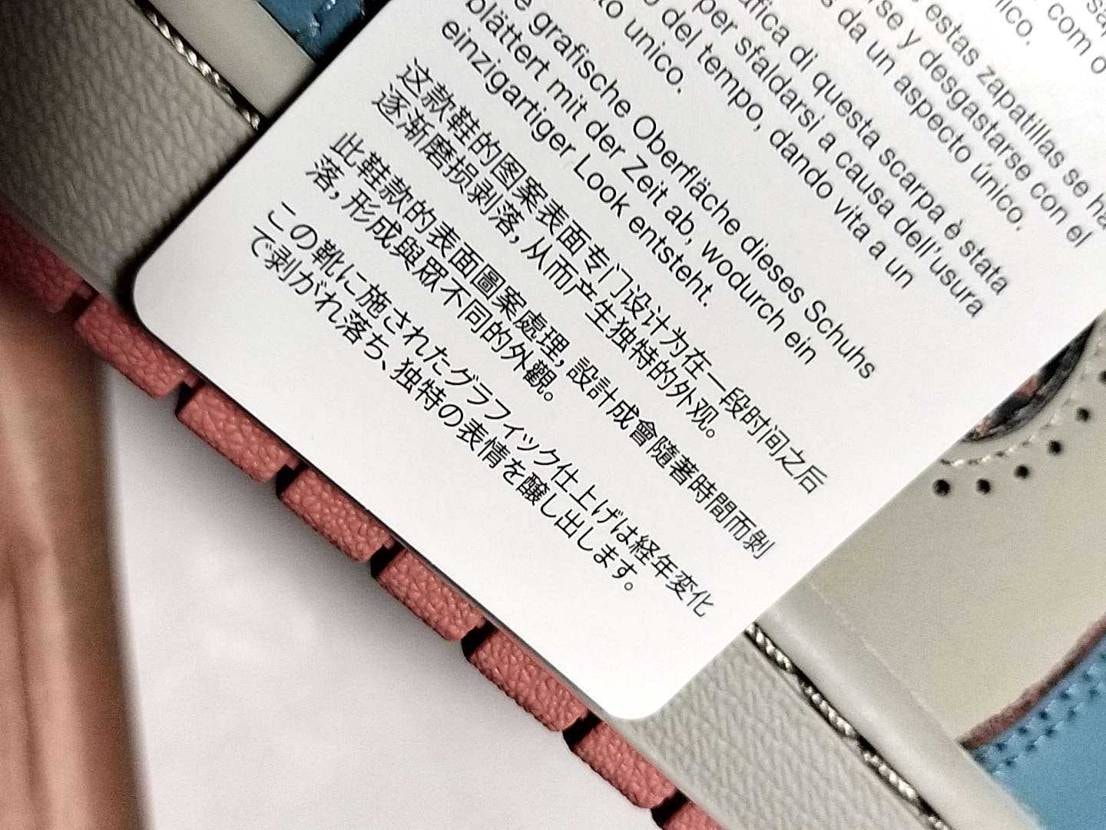 com o
estas zapatillas se
y desgastarse con el
da un aspecto único.
di questa scarpa è stata
per sfaldarsi a causa dell'usura
del tempo, dando vita a un
unico.
grafische Oberfläche dieses Schuhs
blättert mit der Zeit ab, wodurch ein
einzigartiger Look entsteht.
这款鞋的图案表面专门设计为在一段时间之后
逐渐磨损剥落，从而产生独特的外观。
此鞋款的表面圖案處理，設計成會隨著時間而剝
落，形成與眾不同的外觀。
この靴に施されたグラフィック仕上げは経年変化
で剥がれ落ち、独特の表情を醸し出します。